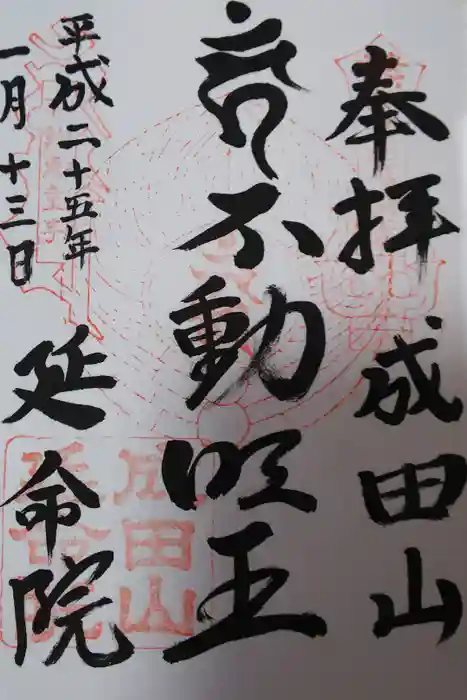 奉拝 成田山
不動明王
平成二十五年
一月十三日
延命院
成田山
延命院